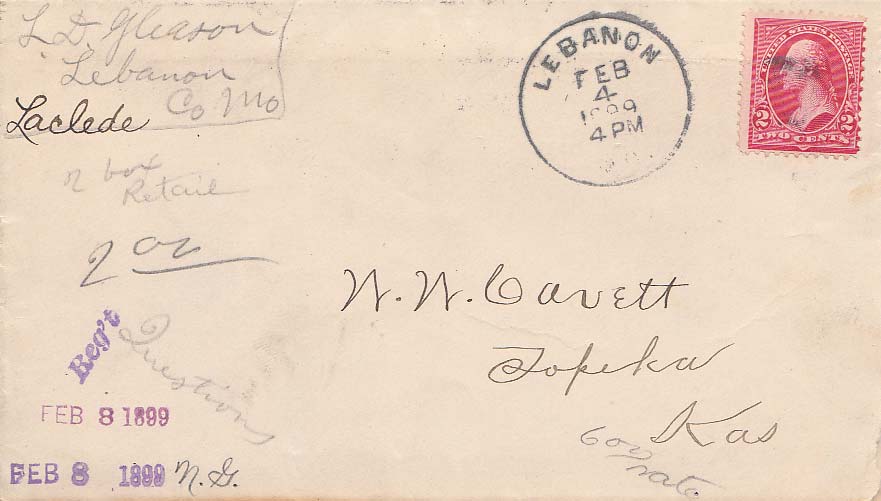 L D Gleason
Lebanon
Co Mo
Laclede
box
Retail
2 oz
LEBANON
FEB
4
1899
4 PM
UNITED STATES POSTAGE
2 2
TWO CENTS
W. W. Cavett
Topeka
Kas
Reg't
Questions
FEB 8 1899
FEB 8 1899 N. G.